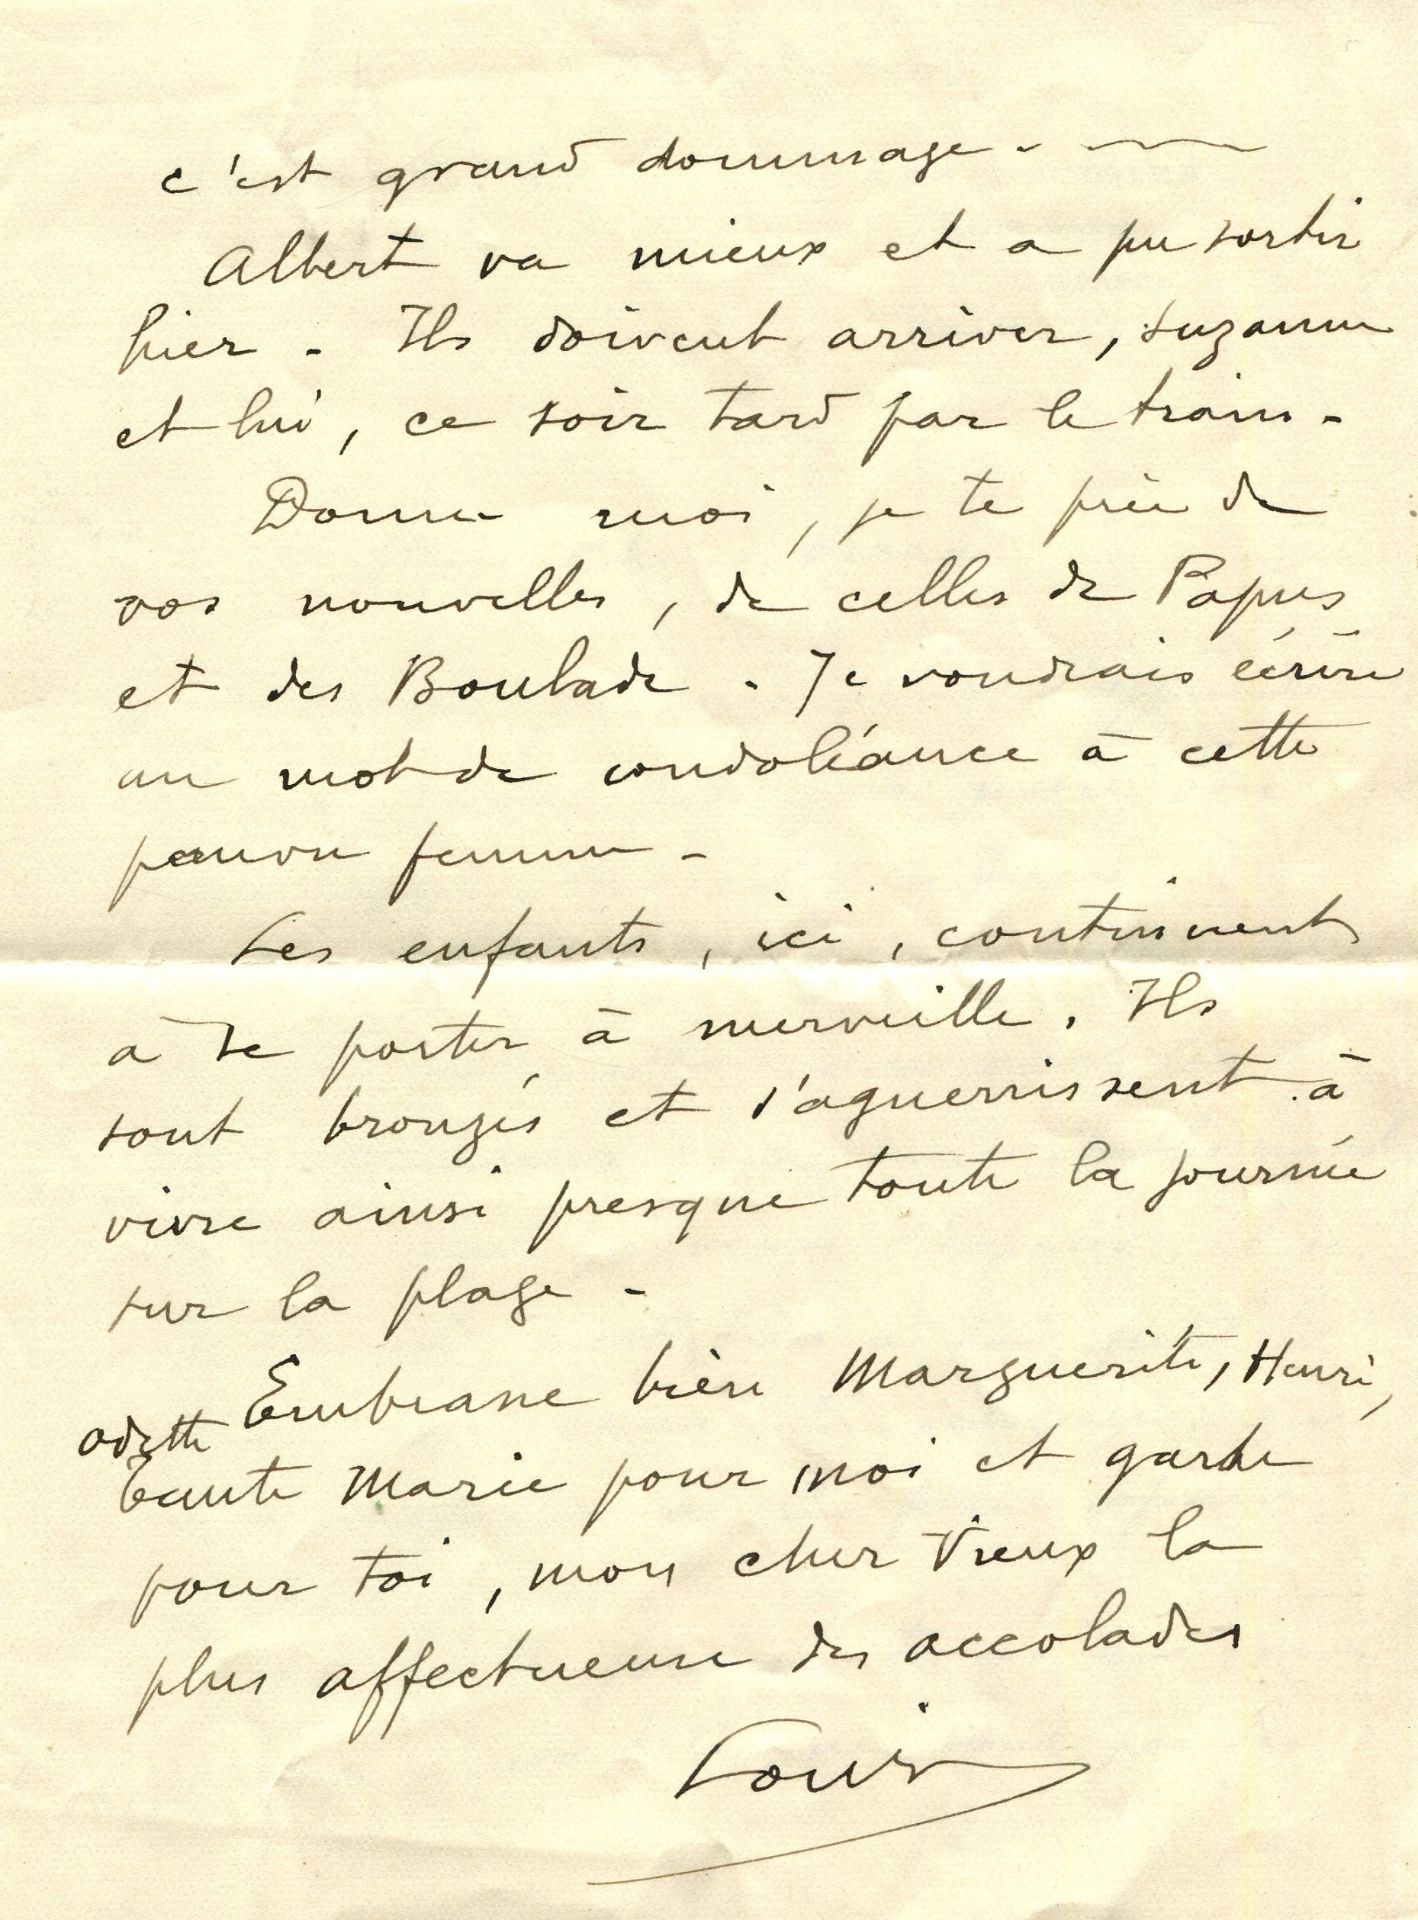 c'est grand dommage -
Albert va mieux et a pu sortir
hier - Ils doivent arriver, Suzanne
et lui, ce soir tard par le train -
Donne moi, je te prie de
vos nouvelles, de celles de Papus
et des Boulade - Je voudrais écrire
un mot de condoléance à cette
pauvre femme -
Les enfants, ici, continuent
à se porter à merveille. Ils
sont bronzés et s'aguerrissent à
vivre ainsi presque toute la journée
sur la plage -
Embrasse bien Marguerite, Henri,
Odette
Tante Marie pour moi et garde
pour toi, mon cher Vieux la
plus affectueuse des accolades
Louis